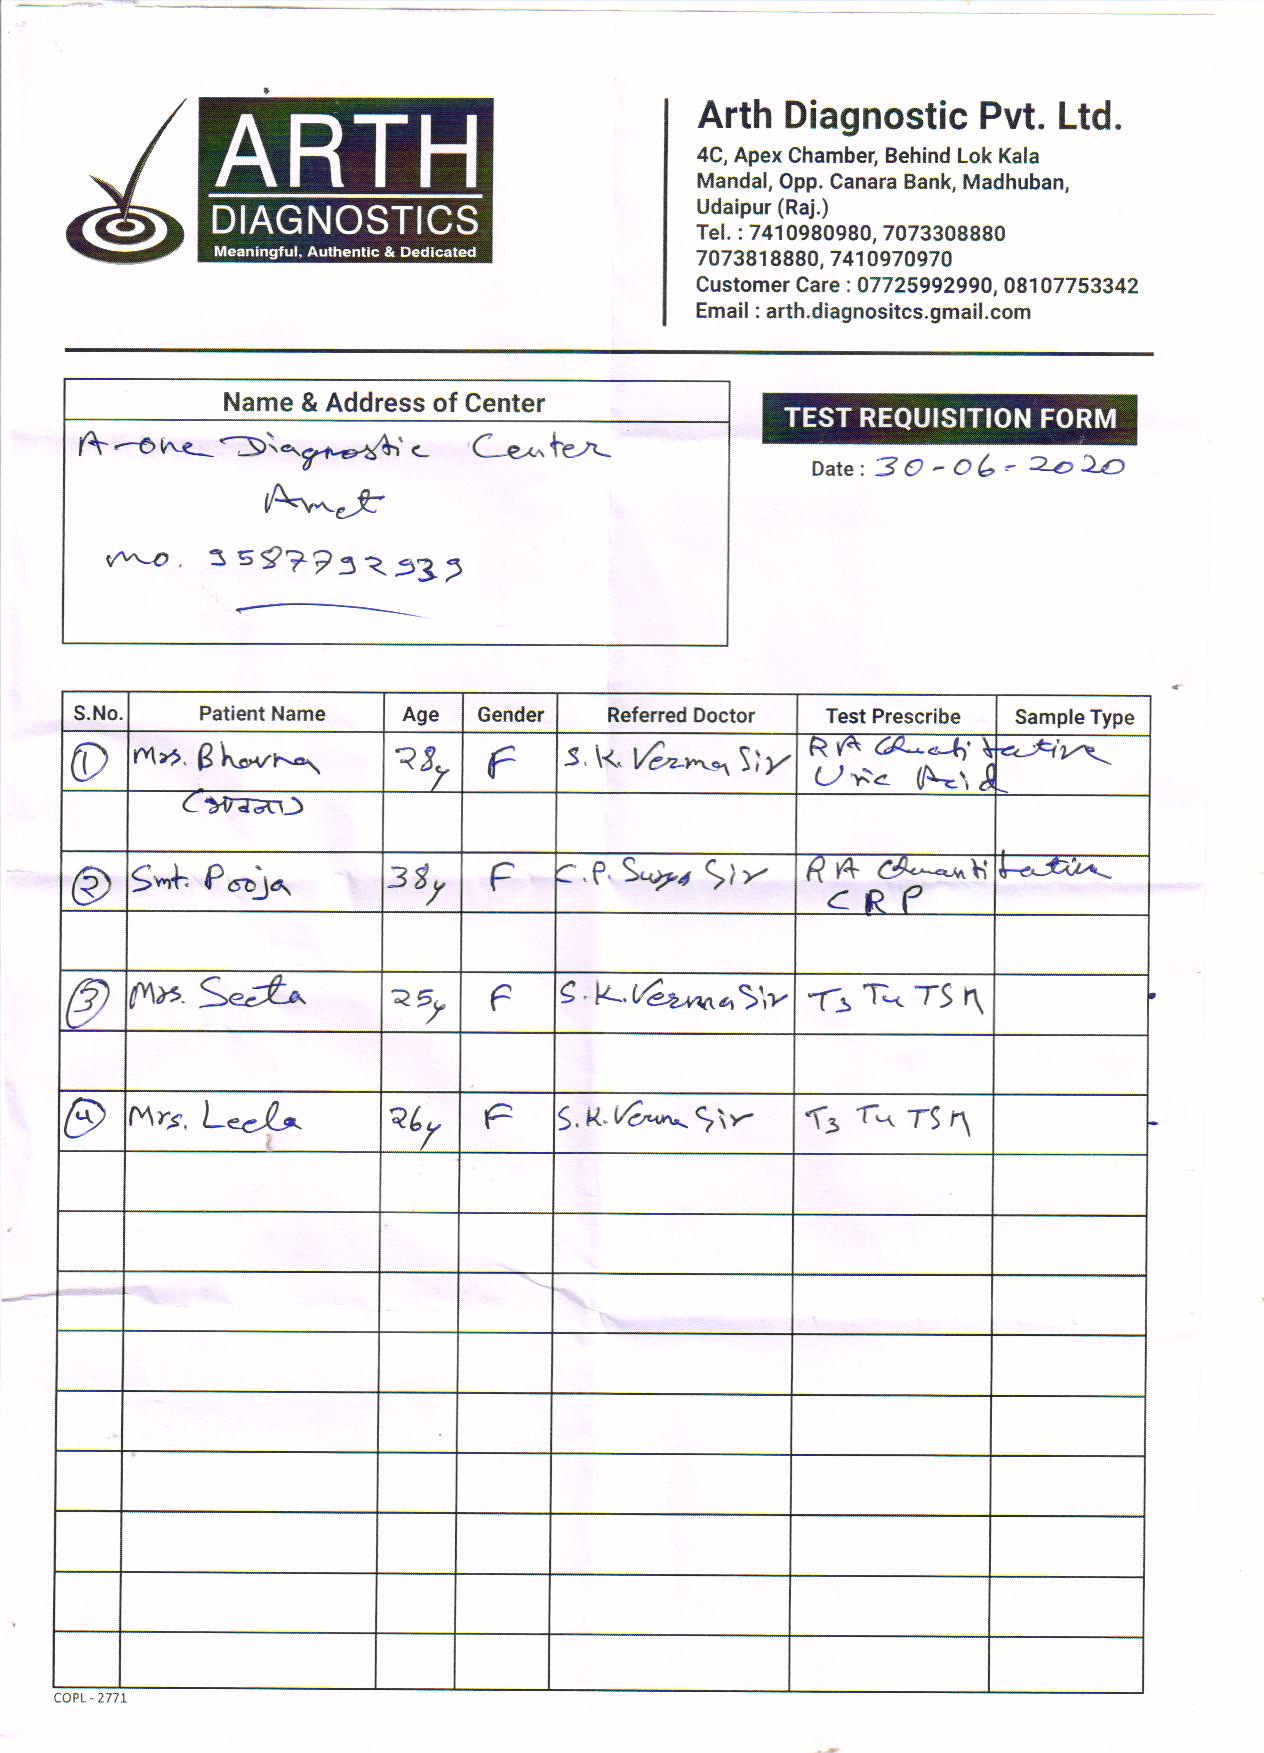 ARTH
DIAGNOSTICS
Meaningful, Authentic & Dedicated
Arth Diagnostic Pvt. Ltd.
4C, Apex Chamber, Behind Lok Kala
Mandal, Opp. Canara Bank, Madhuban,
Udaipur (Raj.)
Tel. : 7410980980, 7073308880
7073818880, 7410970970
Customer Care : 07725992990, 08107753342
Email : arth.diagnositcs.gmail.com
Name & Address of Center
A-one Diagnostic Center
Amet
mo. 9587792939
TEST REQUISITION FORM
Date : 30-06-2020
S.No. Patient Name Age Gender Referred Doctor Test Prescribe Sample Type
1 Mrs. Bhavna 28y F S.K. Verma Sir RA Quatitative
Uric Acid
(भावना)
2 Smt. Pooja 38y F C.P. Sir RA Quantitative
CRP
3 Mrs. Seeta 25y F S.K. Verma Sir T3 T4 TSH
4 Mrs. Leela 26y F S.K. Verma Sir T3 T4 TSH
COPL - 2771